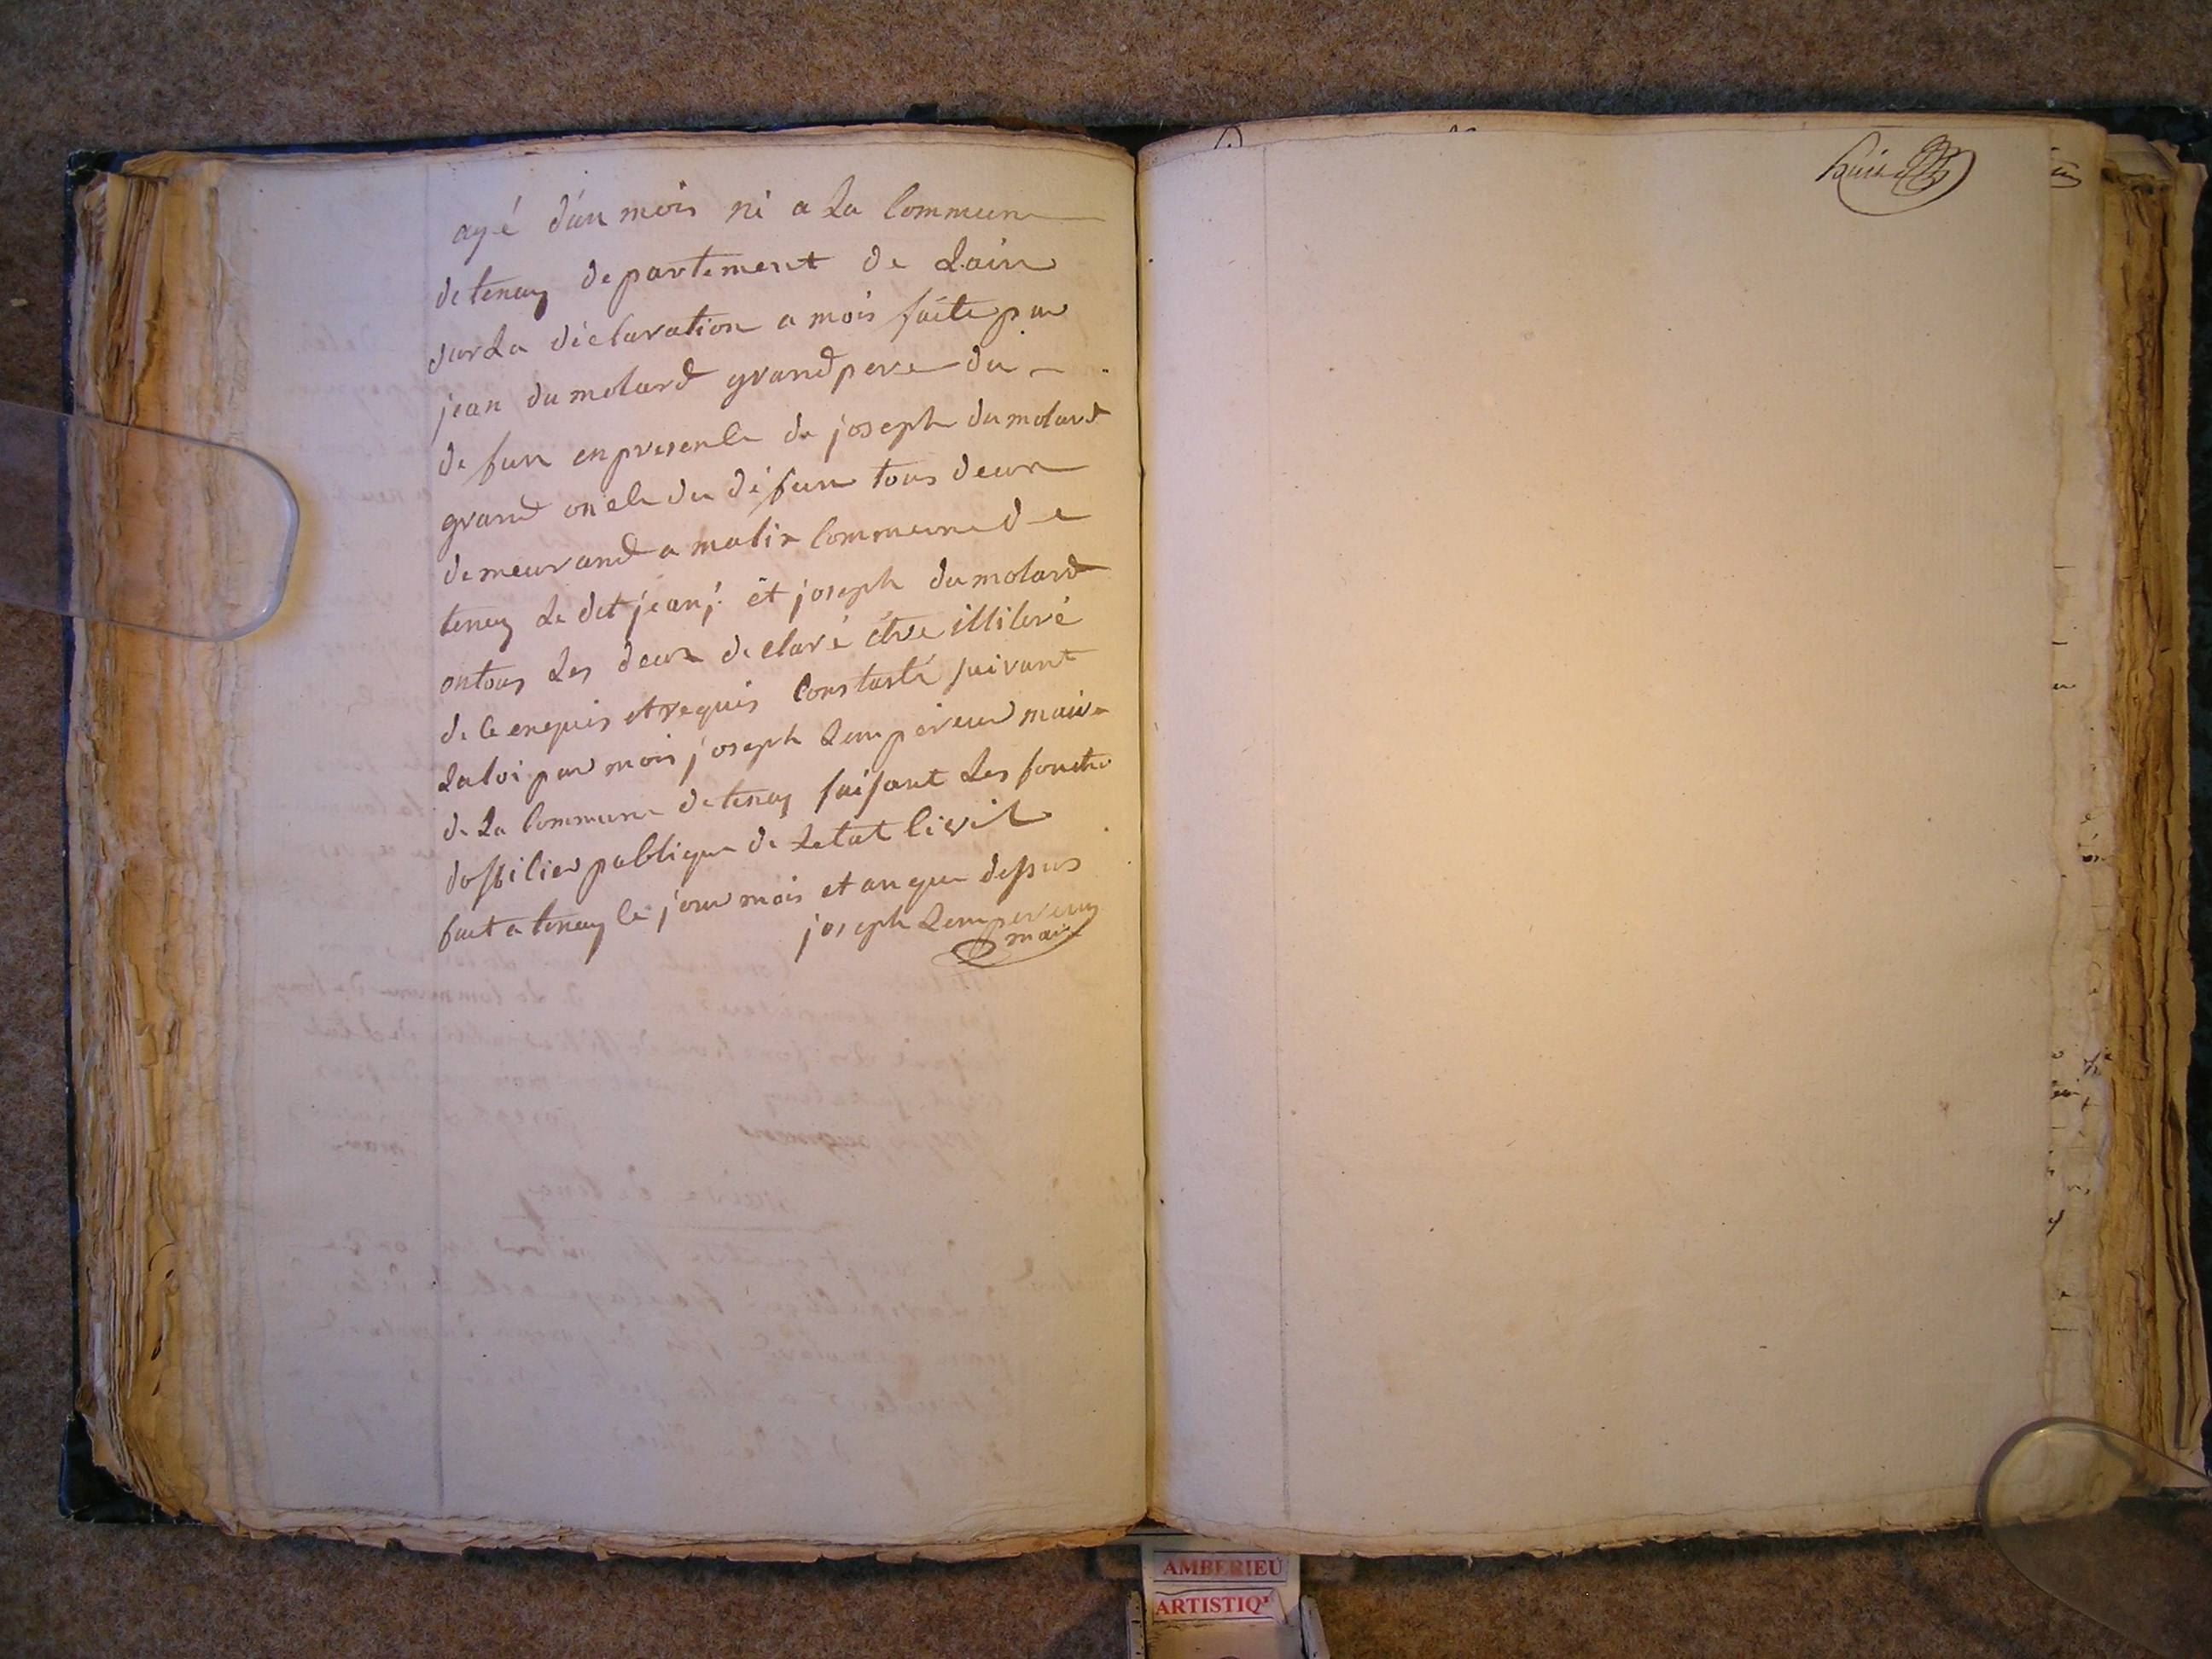 agé d'un mois né a La Commune
de tenay departement de Lain
sur La déclaration a mois faite par
jean dumolard grand pere du
defun en presence de joseph dumolard
grand oncle du défun tous deux
demeurand a malix Commune de
tenay Le dit jean j. et joseph dumolard
on tous Les deux declaré être illiteré
de ce enquis et requis Constasté suivant
La loi par mois joseph Lempereur maire
de La Commune de tenay faisant Les fonctio
doffilier publique de Letat Civil
fait a tenay le jour mois et an que dessus
joseph Lempereur
maire
huit
AMBERIEU
ARTISTIQ